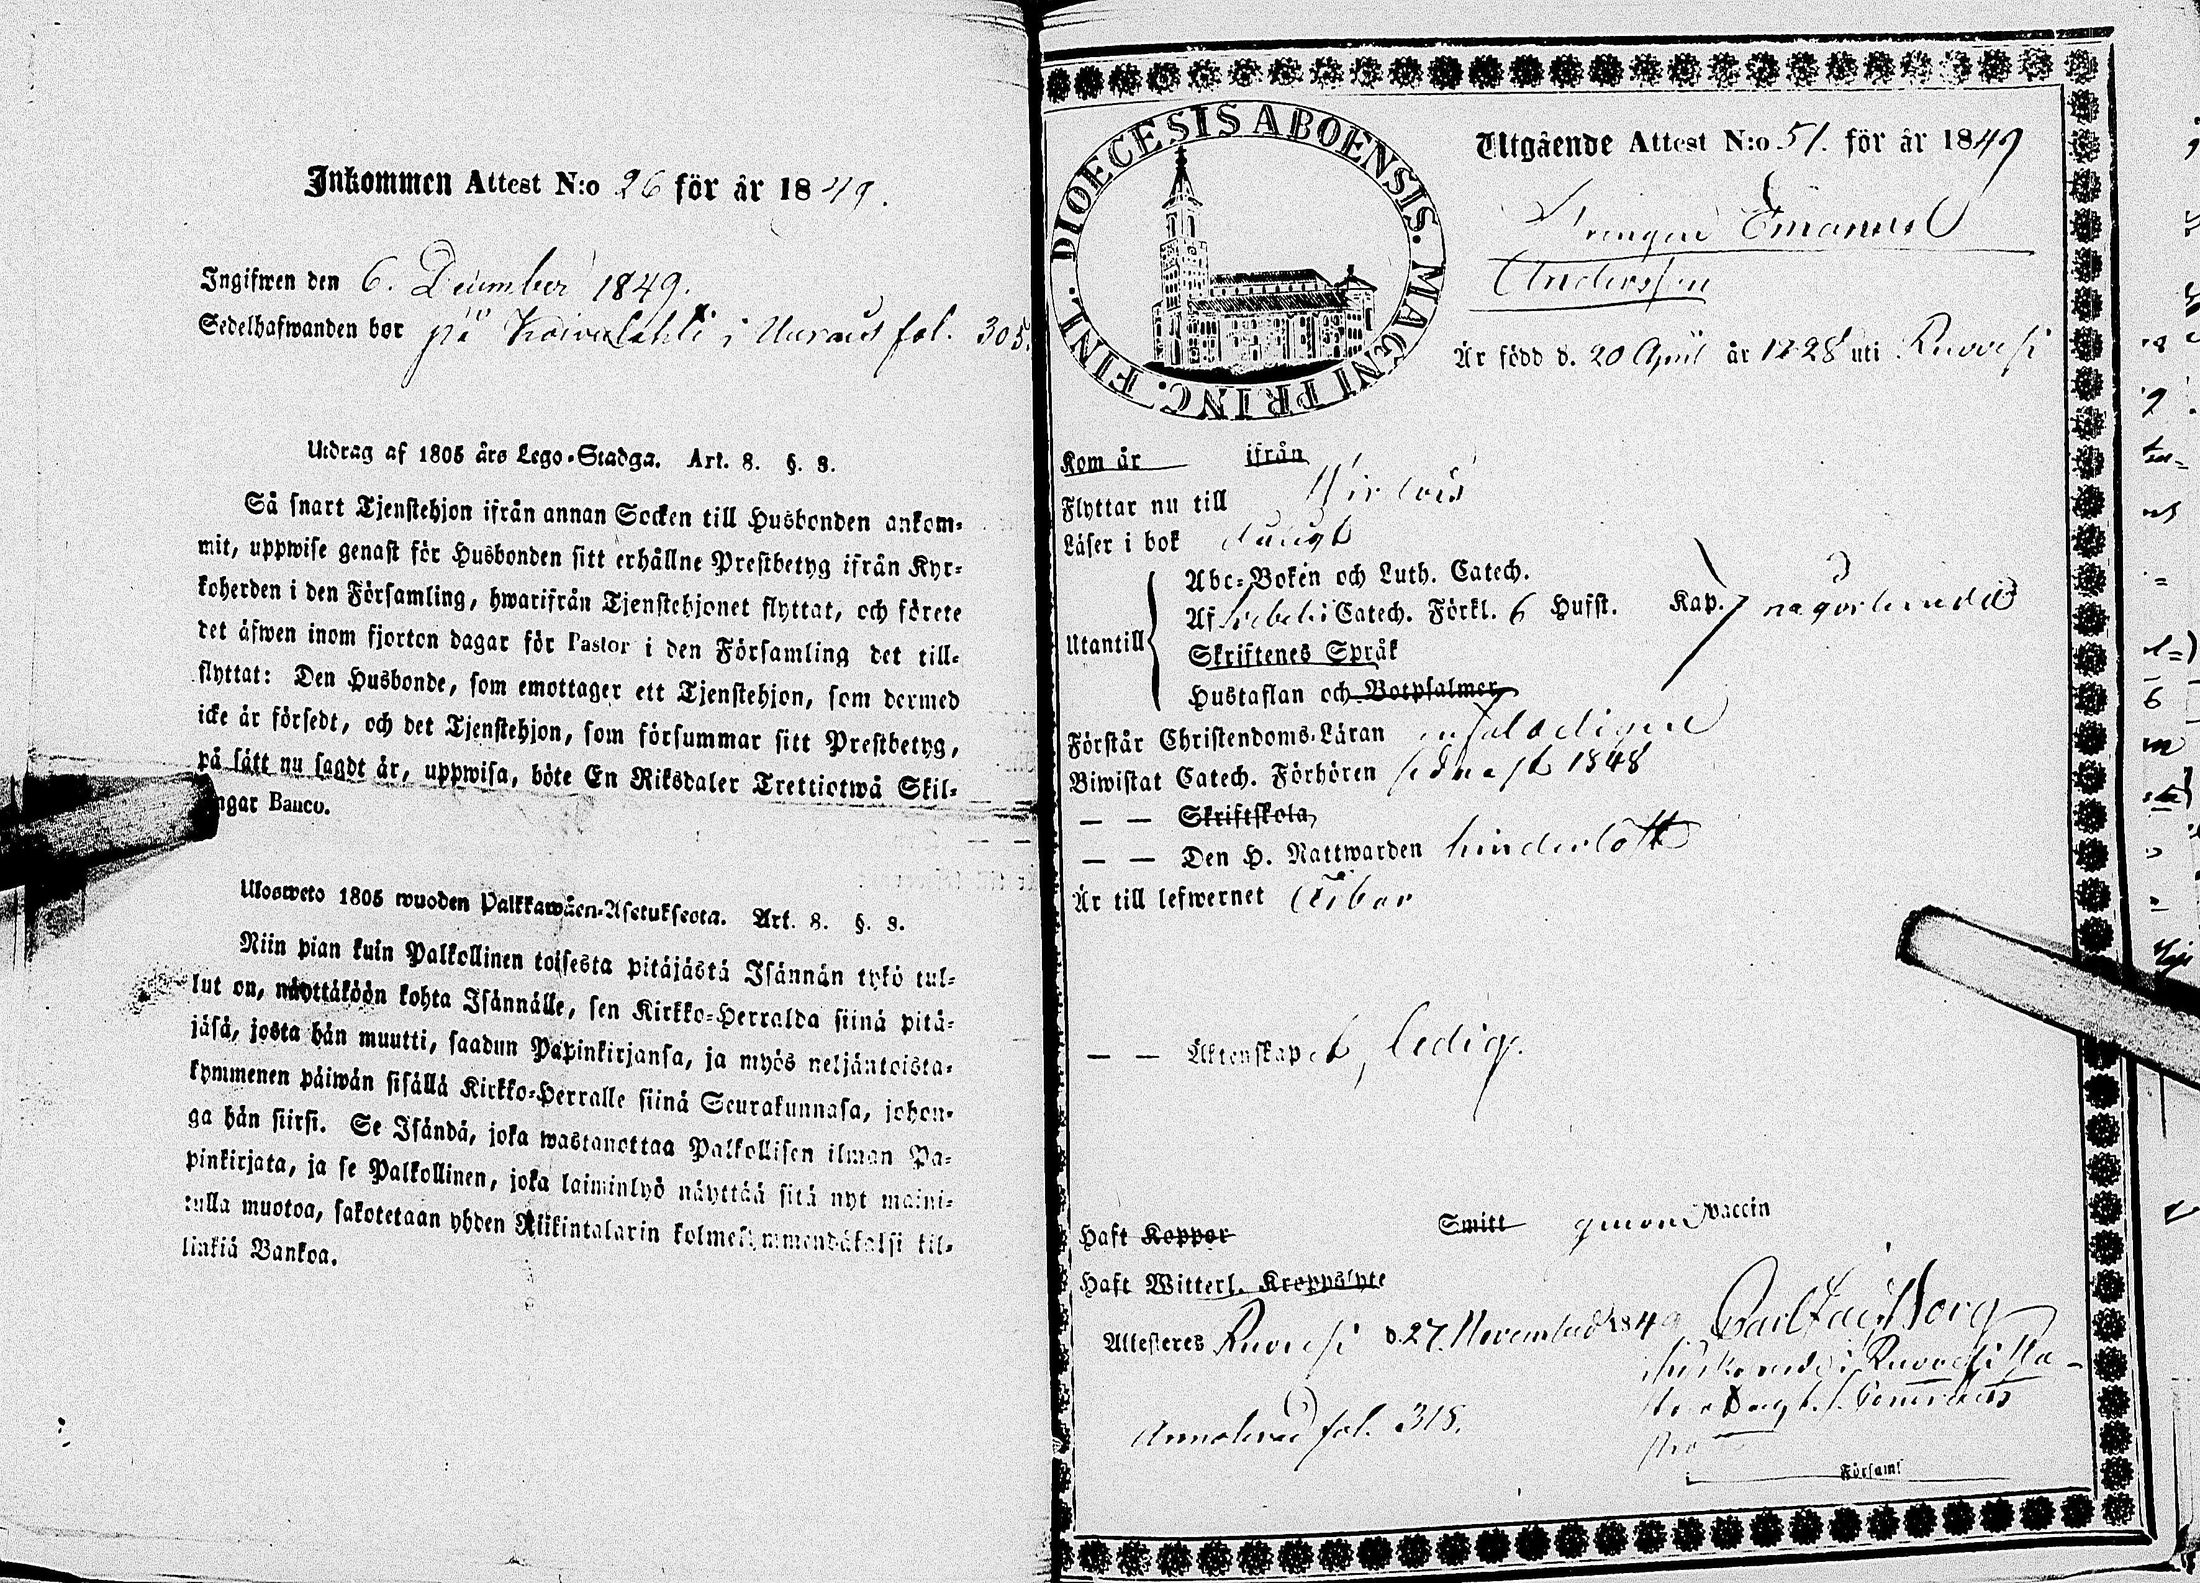 Inkommen Attest N:o 26 för år 1849.
Ingifwen den 6. December 1849.
Sedelhafwanden bor på Koivulahti i Uuraus fol. 305.
Utdrag af 1805 års Lego-Stadga. Art. 8. §. 8.
Så snart Tjenstehjon ifrån annan Socken till Husbonden ankom-
mit, uppwise genast för Husbonden sitt erhållne Prestbetyg ifrån Kyr-
koherden i den Församling, hwarifrån Tjenstehjonet flyttat, och förete
det äfwen inom fjorton dagar för Pastor i den Församling det till-
flyttat: Den Husbonde, som emottager ett Tjenstehjon, som dermed
icke är försedt, och det Tjenstehjon, som försummar sitt Prestbetyg,
på sätt nu sagdt är, uppwisa, böte En Riksdaler Trettiotwå Skil-
ngar Banco.
Ulosweto 1805 wuoden Palkkawäen-Asetuksesta. Art. 8. §. 8.
Niin pian kuin Palkollinen toisesta pitäjästä Isännän tykö tul-
lut on, näyttäköön kohta Isännälle, sen Kirkko-Herralda siinä pitä-
jäsä, josta hän muutti, saadun Papinkirjansa, ja myös neljäntoista-
kymmenen päiwän sisällä Kirkko-Herralle siinä Seurakunnasa, johon-
ga hän siirsi. Se Isändä, joka wastanottaa Palkollisen ilman Pa-
pinkirjata, ja se Palkollinen, joka laiminlyö näyttää sitä nyt maini-
tulla muotoa, sakotetaan yhden Riikintalarin kolmekymmendäkaksi kil-
linkiä Bankoa.
DIOECESIS ABOENSIS. MAGNI PRINC. FINL.
Utgående Attest N:o 51. för år 1849
Drengen Emanuel
Andersson
Är född d. 20 April år 1828 uti Ruovesi
Kom år ifrån
Flyttar nu till Wirdois
Läser i bok
Utantill
Abc-Boken och Luth. Catech.
Af Svebelii Catech. Förkl. 6 Hufst. Kap. någorlunda
Skriftenes Språk
Hustaflan och Botpsalmer
Förstår Christendoms-Läran
Biwistat Catech. Förhören sednast 1848
— — Skriftskola,
— — Den H. Nattwarden
Är till lefwernet ärbar
— — Äktenskapet, ledig.
Haft Koppor Smitt genom vaccin
Haft Witterl. Kroppslyte
Attesteres Ruovesi d. 27. November 1849
i Ruovesi
Annoterad fol. 318.
Församl